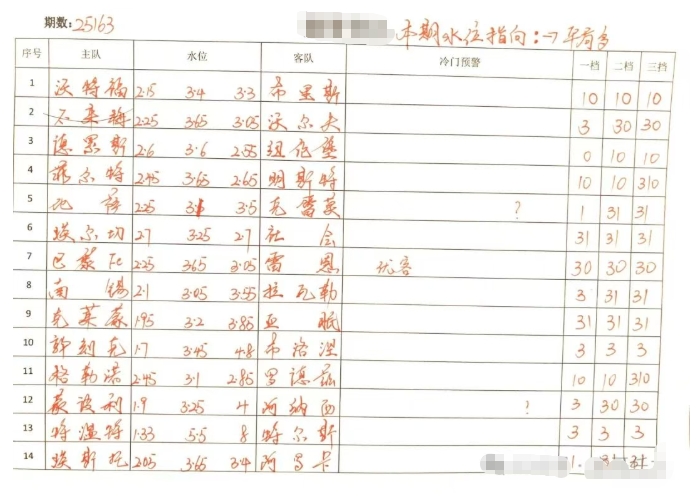 期数:25163 本期水位指向:→平局多
序号 主队 水位 客队 冷门预警 一档 二档 三档
1 沃特福 2.15 3.4 3.3 布里斯 10 10 10
2 不莱梅 2.25 3.65 3.05 沃尔夫 3 30 30
3 德累斯 2.6 3.6 2.55 纽伦堡 0 10 10
4 菲尔特 2.45 3.65 2.65 明斯特 10 10 310
5 比萨 2.25 3.1 3.5 克雷莫 ? 1 31 31
6 埃尔切 2.7 3.25 2.7 社会 31 31 31
7 巴黎FC 2.25 3.65 3.05 雷恩 优客 30 30 30
8 南锡 2.1 3.05 3.55 拉瓦勒 3 31 31
9 克莱蒙 1.95 3.2 3.85 亚眠 31 31 31
10 敦刻克 1.7 3.45 4.8 布洛涅 3 3 3
11 格勒诺 2.45 3.1 2.85 罗德兹 10 10 310
12 蒙彼利 1.9 3.25 4 阿纳西 ? 3 30 30
13 特温特 1.33 5.5 8 特尔斯 3 3 3
14 埃斯托 2.05 3.65 3.4 阿马卡 1 31 31